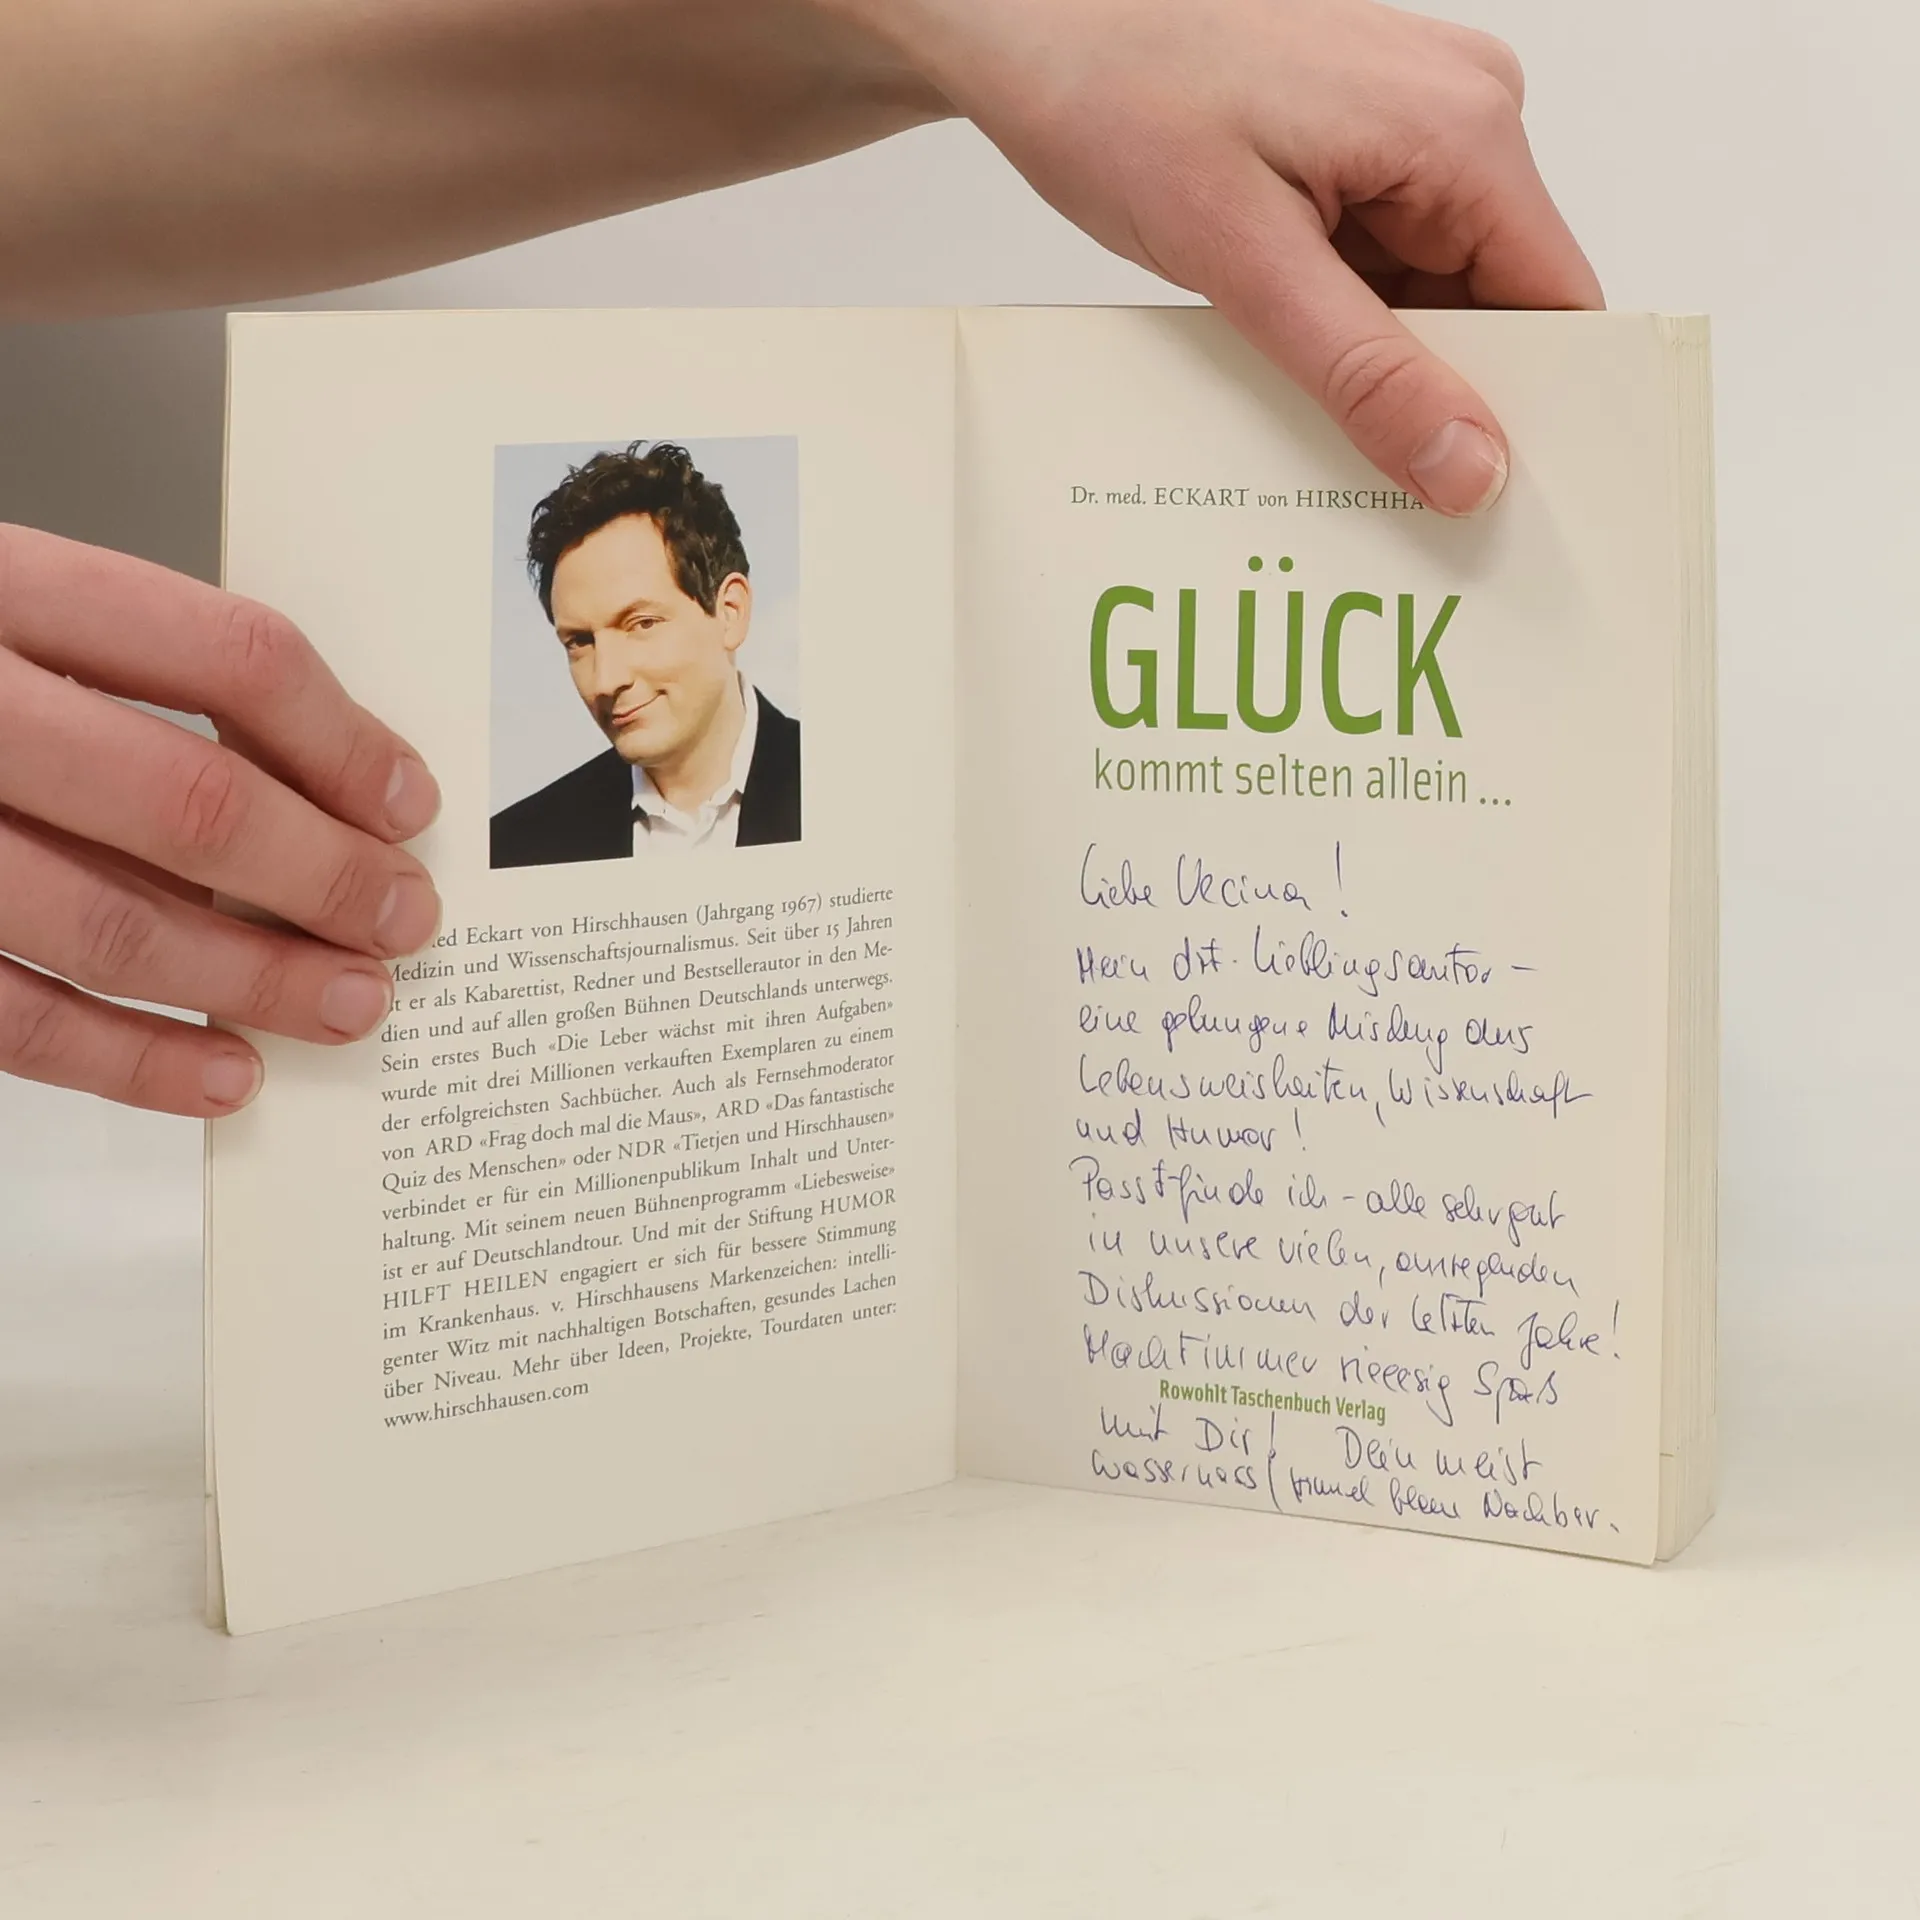 .ed Eckart von Hirschhausen (Jahrgang 1967) studierte
Medizin und Wissenschaftsjournalismus. Seit über 15 Jahren
er als Kabarettist, Redner und Bestsellerautor in den Me-
dien und auf allen großen Bühnen Deutschlands unterwegs.
Sein erstes Buch «Die Leber wächst mit ihren Aufgaben»
wurde mit drei Millionen verkauften Exemplaren zu einem
der erfolgreichsten Sachbücher. Auch als Fernsehmoderator
von ARD «Frag doch mal die Maus», ARD «Das fantastische
Quiz des Menschen» oder NDR «Tietjen und Hirschhausen»
verbindet er für ein Millionenpublikum Inhalt und Unter-
haltung. Mit seinem neuen Bühnenprogramm «Liebesweise»
ist er auf Deutschlandtour. Und mit der Stiftung HUMOR
HILFT HEILEN engagiert er sich für bessere Stimmung
im Krankenhaus. v. Hirschhausens Markenzeichen: intelli-
genter Witz mit nachhaltigen Botschaften, gesundes Lachen
über Niveau. Mehr über Ideen, Projekte, Tourdaten unter:
www.hirschhausen.com
Dr. med. ECKART von HIRSCHHA
GLÜCK
kommt selten allein ...
Liebe Vecina!
Mein dt. Lieblingsautor –
eine gelungene Mischung aus
Lebensweisheiten, Wissenschaft
und Humor!
Passt finde ich – alle sehr gut
in unsere vielen, anregenden
Diskussionen der letzten Jahre!
Macht immer rieeesig Spaß
Rowohlt Taschenbuch Verlag
mit Dir! Dein meist
wassernass / Nachber.